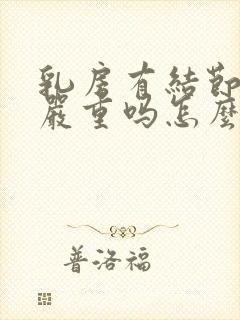 乳房有結節
嚴重吗怎麽
普洛福